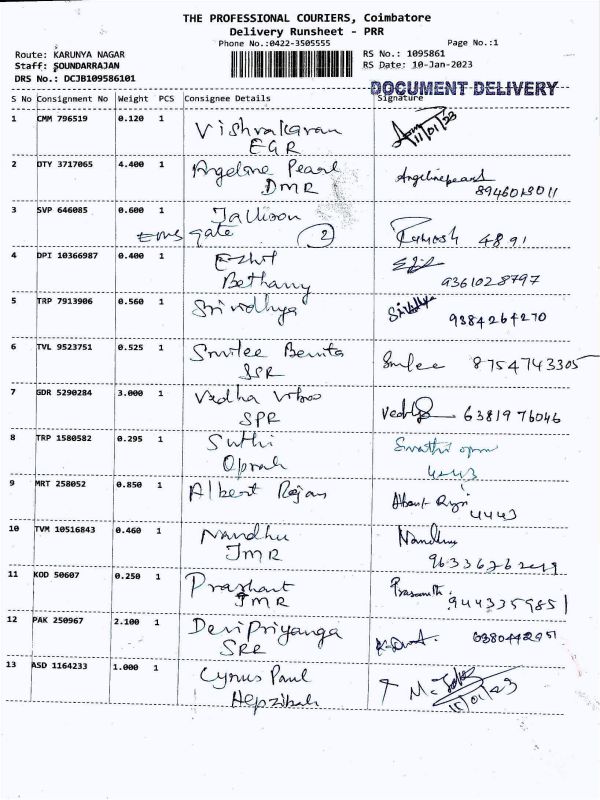 THE PROFESSIONAL COURIERS, Coimbatore
Delivery Runsheet - PRR
Phone No.:0422-3505555 Page No.:1
Route: KARUNYA NAGAR RS No.: 1095861
Staff: SOUNDARRAJAN RS Date: 10-Jan-2023
DRS No.: DCJB109586101
DOCUMENT DELIVERY
S No Consignment No Weight PCS Consignee Details Signature
1 CMM 796519 0.120 1 Vishvakaran
EGR 11/01/23
2 DTY 3717065 4.400 1 Angeline Pearl Angelinepearl
DMR 8946013011
3 SVP 646085 0.600 1 Jallison
EMS gate 2 Ramosh 4891
4 DPI 10366987 0.400 1 Ezhil
Bethany 9361028797
5 TRP 7913906 0.560 1 Srividhya Srividhya 9384264270
6 TVL 9523751 0.525 1 Smilee Benita Smilee 8754743305
SSR
7 GDR 5290284 3.000 1 Vedha
SPR 6381976046
8 TRP 1580582 0.295 1 Suthi Swathi
Oprah 4443
9 MRT 258052 0.850 1 Albert Rajan Albert
4443
10 TVM 10516843 0.460 1 Nandhu Nandhu
JMR
11 KOD 50607 0.250 1 Prashant
JMR 9443359851
12 PAK 250967 2.100 1 Devipriyanga
SRR
13 ASD 1164233 1.000 1 Cyrus Paul
Hepzibah 11/01/23